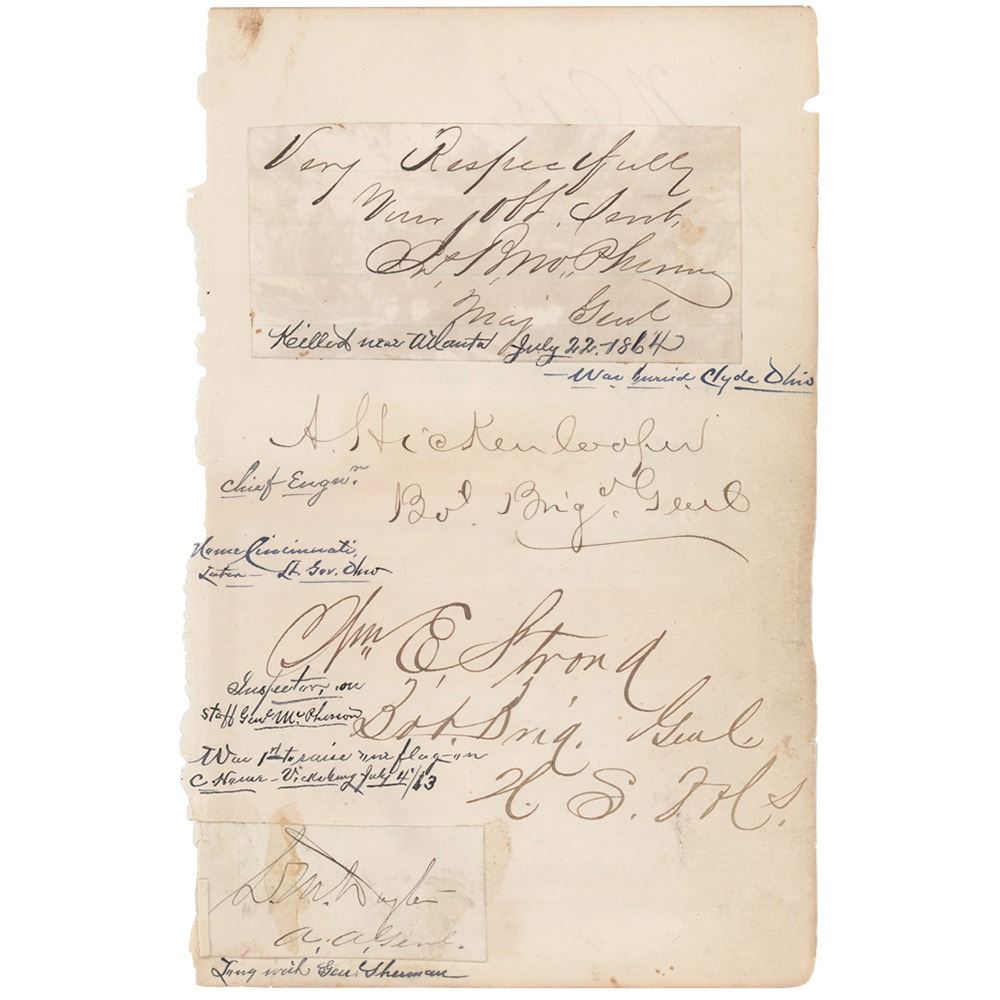 Very Respectfully
Your obt. Servt,
Jas. B. McPherson
Maj Genl
Killed near Atlanta July 22-1864
— Was buried Clyde Ohio
A. Hickenlooper
Chief Engnr.
Bvt. Brigd. Genl
Home Cincinnati,
Later — Lt. Gov. Ohio
Wm E. Strong
Inspector, on
staff Genl McPherson
Bvt. Brig. Genl.
Was 1st to raise our flag on
C. House - Vicksburg July 4/63
U. S. Vols.
L. M. Dayton
A. A. Genl.
Long with Genl Sherman